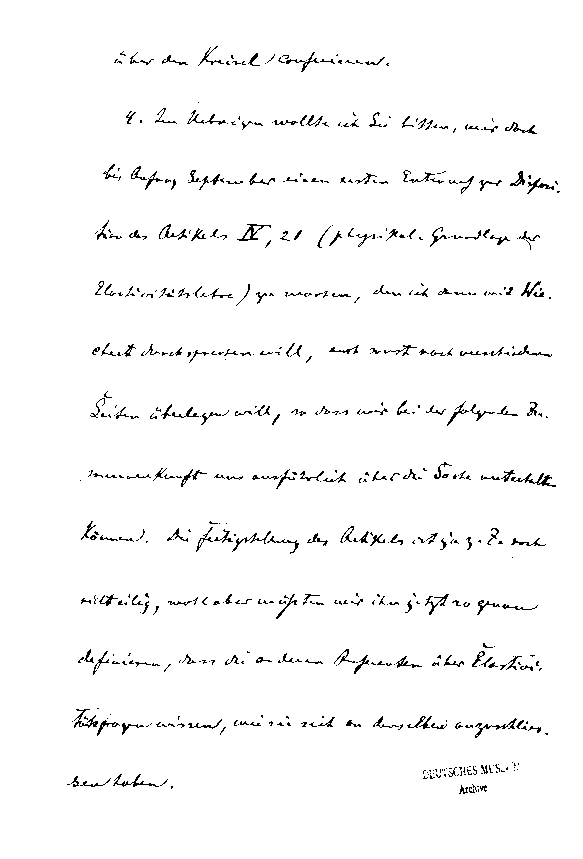 über den Kreisel conferieren.
4. Im Uebrigen wollte ich Sie bitten, mir doch
bis Anfang September einen ersten Entwurf zur Disposi-
tion des Artikels IV, 21 (physikal. Grundlage der
Elasticitätslehre) zu machen, den ich dann mit Wie-
chert durchsprechen will, auch sonst nach verschiedenen
Seiten überlegen will, so dass wir bei der folgenden Zu-
sammenkunft uns ausführlich über die Sache unterhalten
können. Die Fertigstellung des Artikels ist ja z. Z. noch
nicht eilig, wohl aber müssten wir ihn jetzt so genau
definieren, dass die anderen Referenten über Elastici-
tätsfragen wissen, wie sie sich an denselben anzuschlies-
sen haben.
DEUTSCHES MUSEUM
Archive